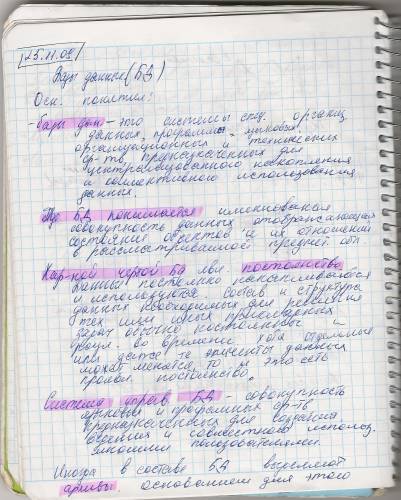 25.11.08
Базы данных (БД)
Осн. понятия:
-базы дан - это системы спец. организ.
данных, программн., языковых,
организационных и технических
ср-тв, предназначенных для
централизованного накопления
и коллективного использования
данных.
БД понимается именованная
совокупность данных отображающая
состояние объектов и их отношения
в рассматриваемой предмет. обл
Хар-ной чертой БД явл. постоянство
данные постоянно накапливаются
и используются состав и структура
данных необходимых для решения
тех или иных прикладных
задач обычно постоянны и
во времени хотя отдельные
или даже те элементы данных
может меняться, то и это есть
прояв. постоянство.
Система управ БД - совокупность
языковых и программных ср-тв
предназначенных для создания
ведения и совместного использ.
многими пользователями.
Иногда в составе БД выделяют
архивы. основанием для этого